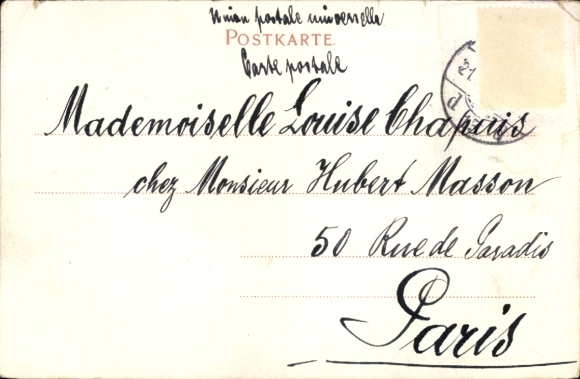 Union postale universelle
POSTKARTE.
Carte postale
21
Mademoiselle Louise Chapuis
chez Monsieur Hubert Masson
50 Rue de Paradis
Paris